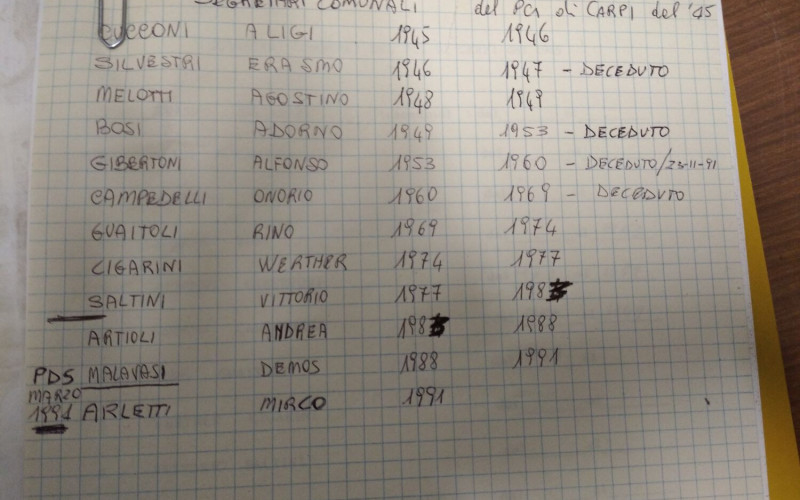 SEGRETARI COMUNALI del PCI di CARPI del '45
CUCCONI ALIGI 1945 1946
SILVESTRI ERASMO 1946 1947 - DECEDUTO
MELOTTI AGOSTINO 1948 1949
BOSI ADORNO 1949 1953 - DECEDUTO
GIBERTONI ALFONSO 1953 1960 - DECEDUTO/23-11-91
CAMPEDELLI ONORIO 1960 1969 - DECEDUTO
GUAITOLI RINO 1969 1974
CIGARINI WERTHER 1974 1977
SALTINI VITTORIO 1977 198
ARTIOLI ANDREA 198 1988
PDS MALAVASI DEMOS 1988 1991
MARZO
1991 ARLETTI MIRCO 1991